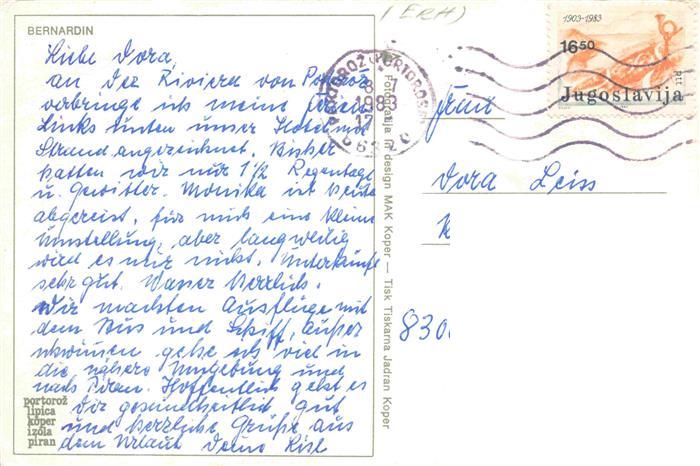 BERNARDIN
Liebe Dora,
an der Riviera von Portorož
verbringe ich meine Ferien
Links unten unser Hotel mit
Strand angezeichnet. Bisher
hatten wir nur 1 1/2 Regentage
u. Gewitter. Monika ist heute
abgereist, für mich eine kleine
Umstellung, aber langweilig
wird es mir nicht. Unterkünfte
sehr gut. Wasser herrlich.
Wir machten Ausflüge mit
dem Bus und Schiff, außer
schwimmen gehe ich viel in
die nähere Umgebung und
nach Piran. Hoffentlich geht es
Dir gesundheitlich gut
und herzliche Grüße aus
dem Urlaub Deine Lisl
portorož
lipica
koper
izola
piran
Fotografija in design MAK Koper — Tisk Tiskarna Jadran Koper
(ERH)
PORTOROŽ PORTOROSE
8. 7
1983
17
66320
1903-1983
16.50
PTT
Jugoslavija
Frau
Dora Leiss
830